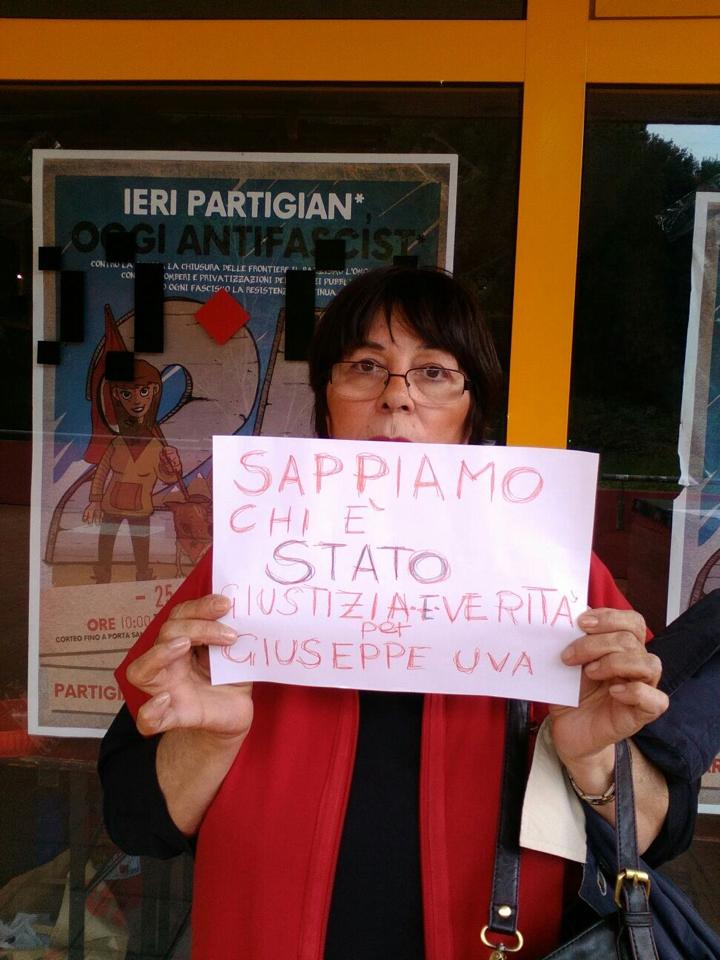 IERI PARTIGIAN*
OGGI ANTIFASCIST*
LA CHIUSURA DELLE FRONTIERE IL
E PRIVATIZZAZIONI DEI
OGNI FASCISMO LA RESISTENZA
- 25
ORE 10:00
CORTEO FINO A PORTA
PARTIGI
SAPPIAMO
CHI È
STATO
GIUSTIZIA E VERITÀ
per
GIUSEPPE UVA